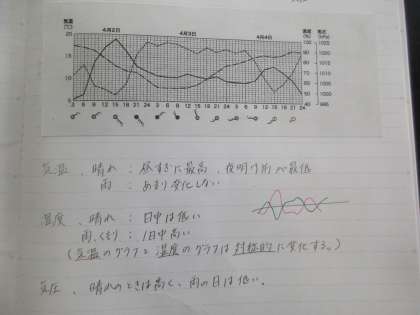 気温 (℃) 4月2日 4月3日 4月4日 湿度 (%) 気圧 (hPa)
20 100
15
10
5 40
3 6 9 12 15 18 21 24 3 6 9 12 15 18 21 24 3 6 9 12 15 18 21 24
気温、晴れ : 昼すぎに最高、夜明け前が最低
雨 : あまり変化しない
湿度、晴れ : 日中は低い
雨、くもり : 1日中高い
(気温のグラフと湿度のグラフは対称的に変化する。)
気圧、晴れのときは高く、雨の日は低い。